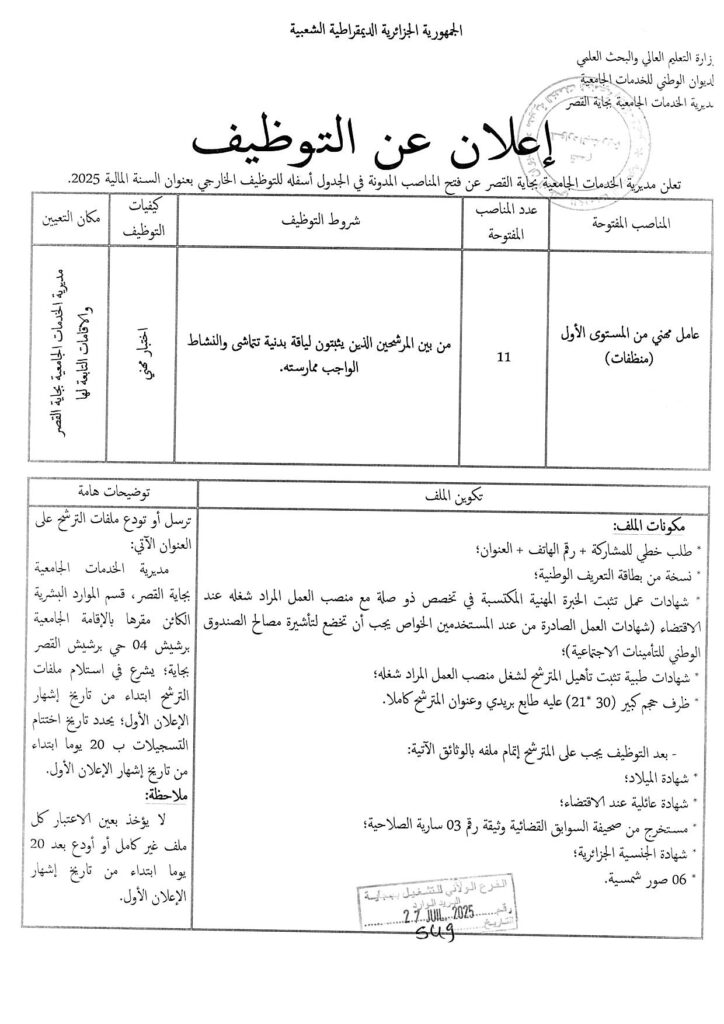 الجمهورية الجزائرية الديمقراطية الشعبية
وزارة التعليم العالي والبحث العلمي
الديوان الوطني للخدمات الجامعية
مديرية الخدمات الجامعية بجاية القصر
إعلان عن التوظيف
تعلن مديرية الخدمات الجامعية بجاية القصر عن فتح المناصب المدونة في الجدول أسفله للتوظيف الخارجي بعنوان السنة المالية 2025.
المناصب المفتوحة
عدد المناصب
المفتوحة
شروط التوظيف
كيفيات
التوظيف
مكان التعيين
عامل مهني من المستوى الأول
(منظفات)
11
من بين المرشحين الذين يثبتون لياقة بدنية تتماشى والنشاط
الواجب ممارسته.
اختبار مهني
مديرية الخدمات الجامعية بجاية القصر
والاقامات التابعة لها
تكوين الملف
مكونات الملف:
* طلب خطي للمشاركة + رقم الهاتف + العنوان؛
* نسخة من بطاقة التعريف الوطنية؛
* شهادات عمل تثبت الخبرة المهنية المكتسبة في تخصص ذو صلة مع منصب العمل المراد شغله عند
الاقتضاء (شهادات العمل الصادرة من عند المستخدمين الخواص يجب أن تخضع لتأشيرة مصالح الصندوق
الوطني للتأمينات الاجتماعية)؛
* شهادات طبية تثبت تأهيل المترشح لشغل منصب العمل المراد شغله؛
* ظرف حجم كبير (30 *21) عليه طابع بريدي وعنوان المترشح كاملا.
- بعد التوظيف يجب على المترشح إتمام ملفه بالوثائق الآتية:
* شهادة الميلاد؛
* شهادة عائلية عند الاقتضاء؛
* مستخرج من صحيفة السوابق القضائية وثيقة رقم 03 سارية الصلاحية؛
* شهادة الجنسية الجزائرية؛
* 06 صور شمسية.
توضيحات هامة
ترسل أو تودع ملفات الترشح على
العنوان الآتي:
مديرية الخدمات الجامعية
بجاية القصر، قسم الموارد البشرية
الكائن مقرها بالإقامة الجامعية
برشيش 04 حي برشيش القصر
بجاية؛ يشرع في استلام ملفات
الترشح ابتداء من تاريخ إشهار
الإعلان الأول؛ يحدد تاريخ اختتام
التسجيلات ب 20 يوما ابتداء
من تاريخ إشهار الإعلان الأول.
ملاحظة:
لا يؤخذ بعين الاعتبار كل
ملف غير كامل أو أودع بعد 20
يوما ابتداء من تاريخ إشهار
الإعلان الأول.
الفرع الولائي للتشغيل ببجاية
البريد الوارد
رقم
27 JUIL. 2025
التاريخ
549